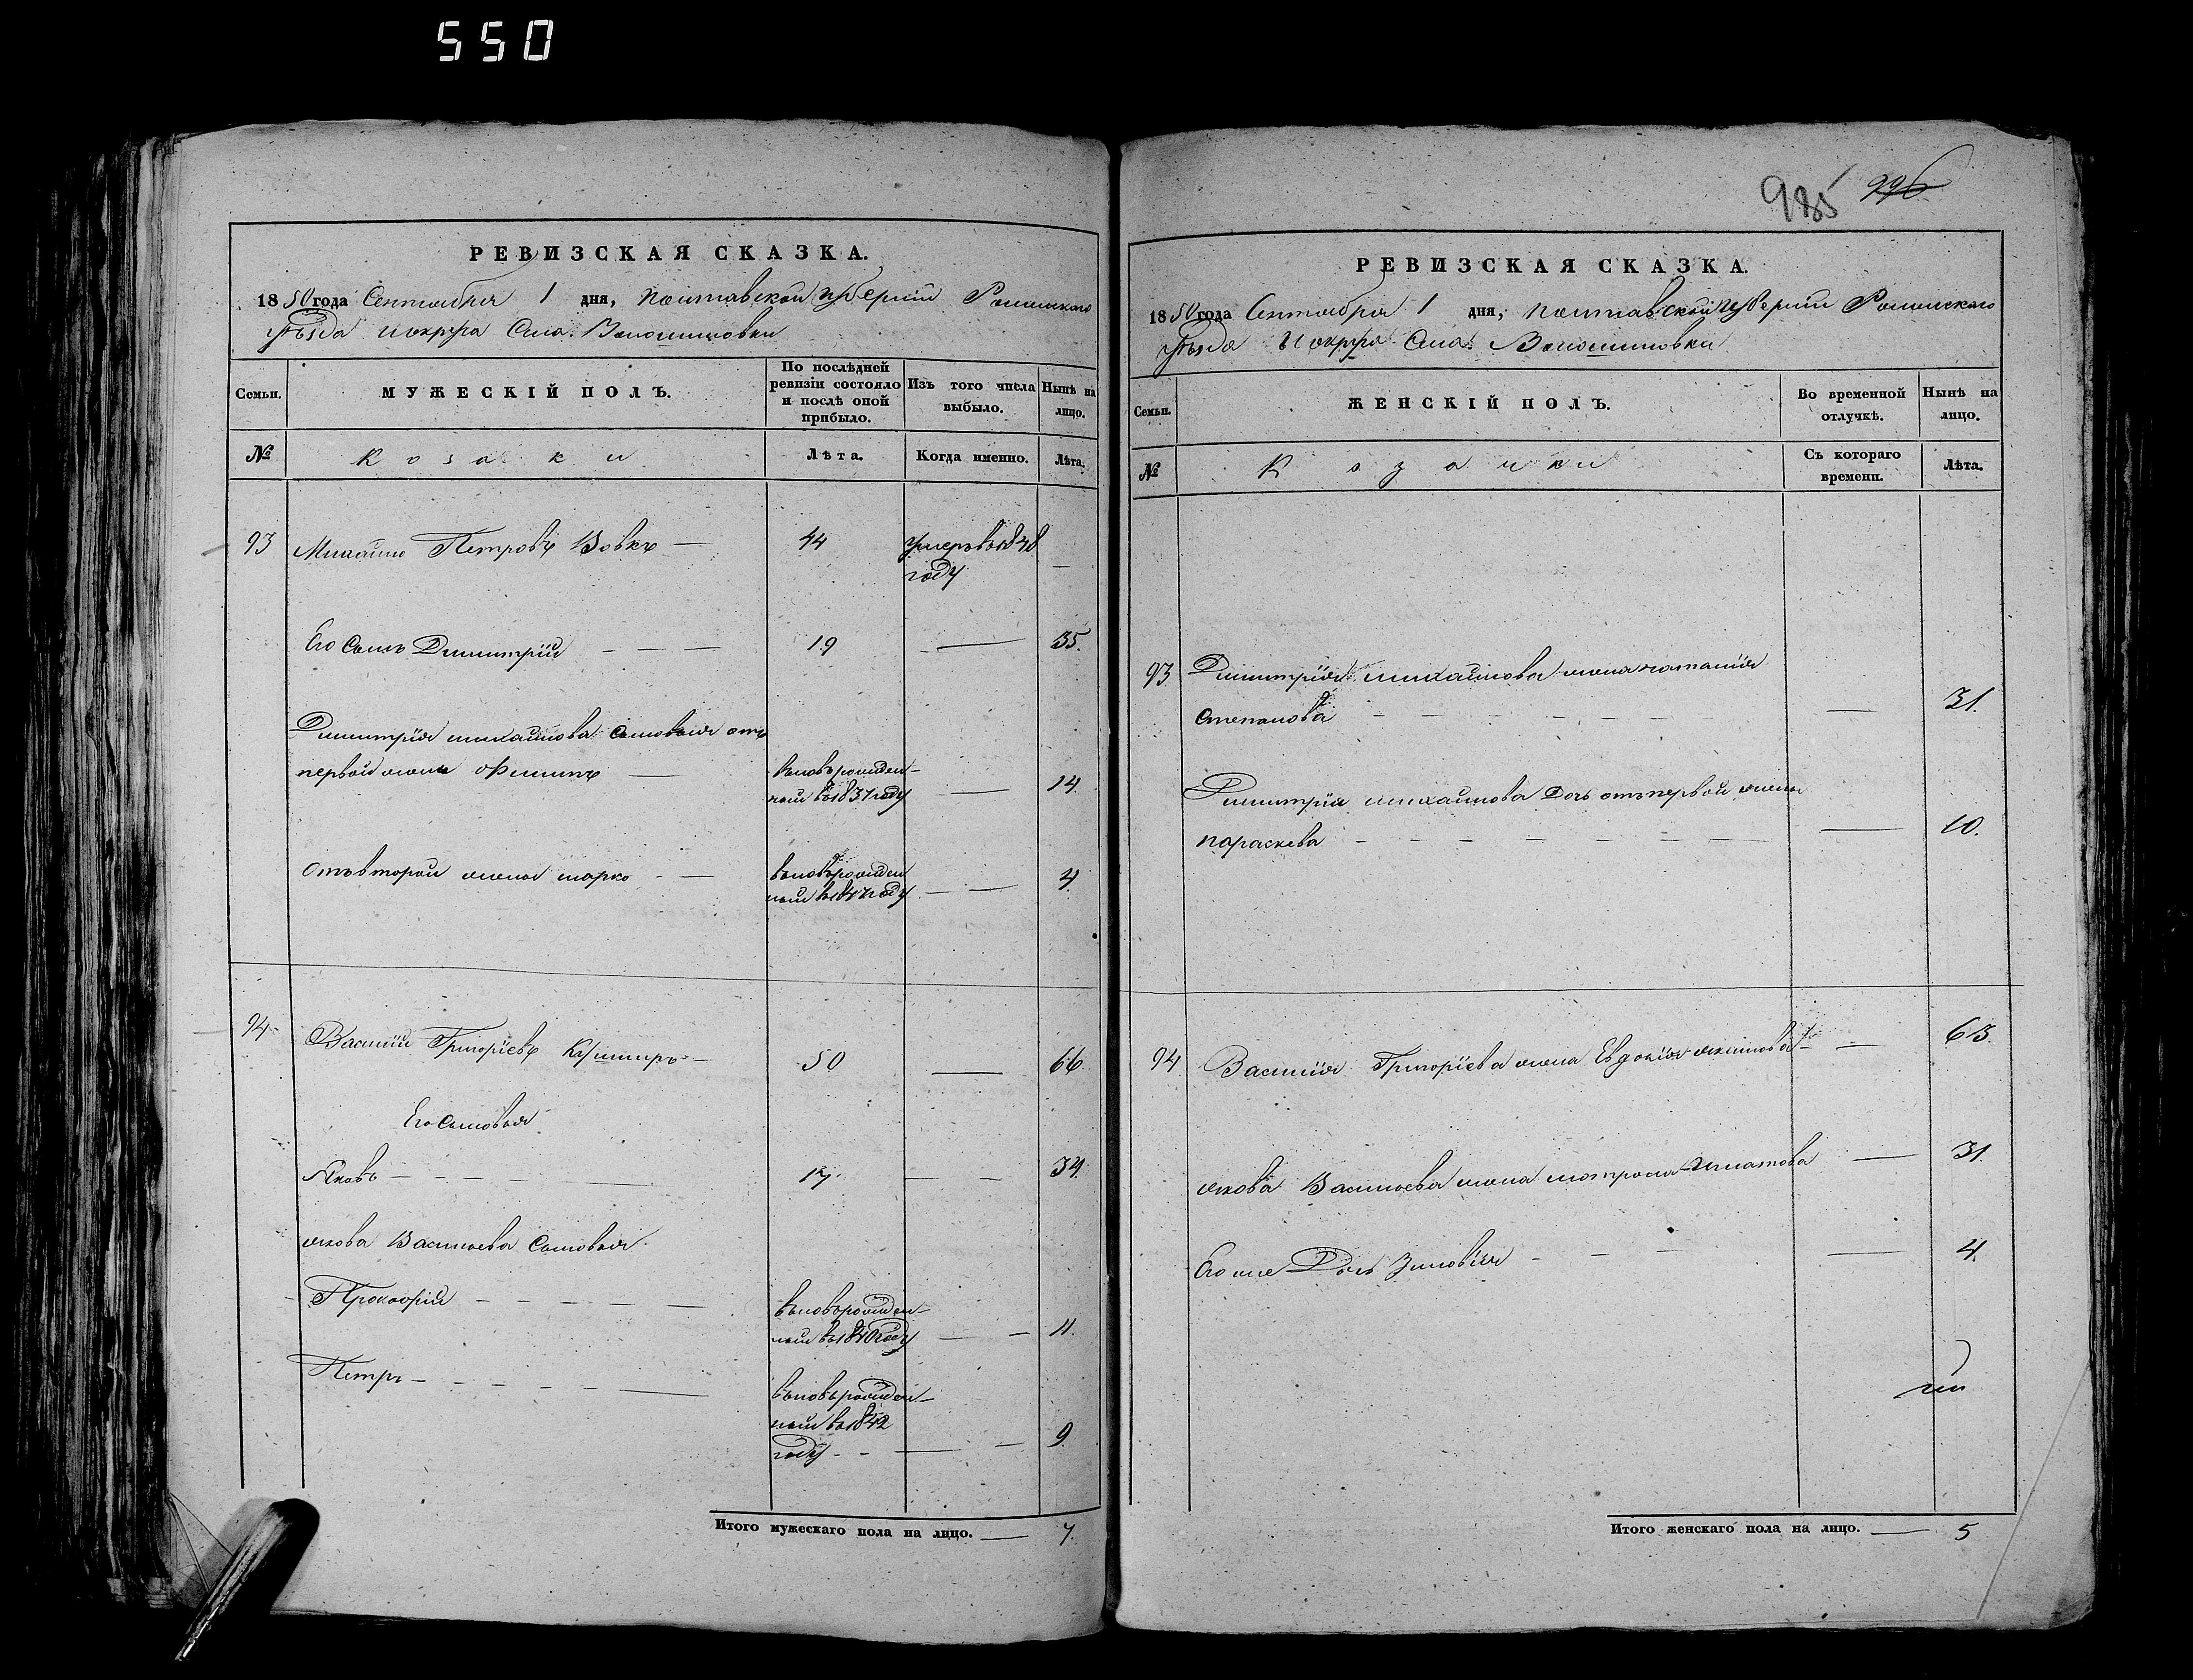 550
985 996
РЕВИЗСКАЯ СКАЗКА.
1850 года Сентября 1 дня, Полтавской Губерніи Роменскаго
Уѣзда и округа Села Волошиновки
Семьи. МУЖЕСКІЙ ПОЛЪ. По послѣдней ревизіи состояло и послѣ оной прибыло. Изъ того числа выбыло. Нынѣ на лицо.
№ Козаки Лѣта. Когда именно. Лѣта.
93 Михайло Петровъ Вовкъ — 44 Умеръ въ 1848 году —
Его Сынъ Димитрій — — — 19 — 35.
Димитрія Михайлова Сыновья отъ
первой жены Филипъ — вновьрожден-
ный въ 1837 году — 14.
Отъ второй жены Марко — — вновьрожден
ный въ 1847 году — — 4.
94 Василій Григоріевъ Кушниръ — 50 — 66
Его Сыновья
Яковъ — — — — — 17 — — 34.
Якова Васильева Сыновья
Прокофій — — — — — — вновьрожден-
ный въ 1840 году — — 11.
Петръ — — — — — — вновьрожден-
ный въ 1842
году — — — — 9.
Итого мужескаго пола на лицо. — 7.
РЕВИЗСКАЯ СКАЗКА.
1850 года Сентября 1 дня, Полтавской Губерніи Роменскаго
Уѣзда и округа Села Волошиновки
Семьи. ЖЕНСКІЙ ПОЛЪ. Во временной отлучкѣ. Нынѣ на лицо.
№ Козачки Съ котораго времени. Лѣта.
93 Димитрія Михайлова жена Наталія
Степанова — — — — — — — 31.
Димитрія Михайлова Дочь отъ первой жены
Параскева — — — — — — — — 10.
94 Василія Григоріева жена Евдокія Якимова — — 63.
Якова Васильева жена Мотрона Игнатова — 31.
Его же Дочь Зиновія — — — — 4.
Итого женскаго пола на лицо. — 5